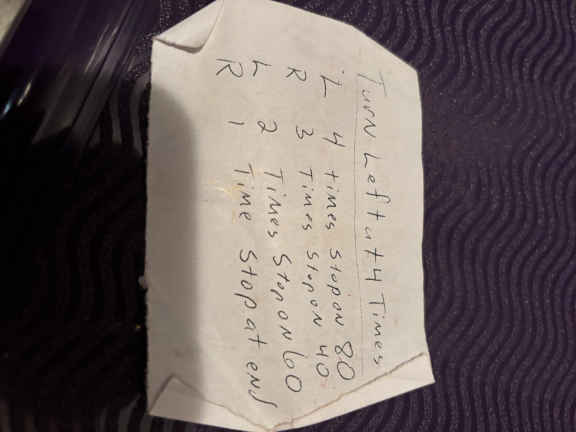 Turn Left at 4 Times
L 4 times Stop on 80
R 3 Times Stop on 40
L 2 Times Stop on 60
R 1 Time Stop at end